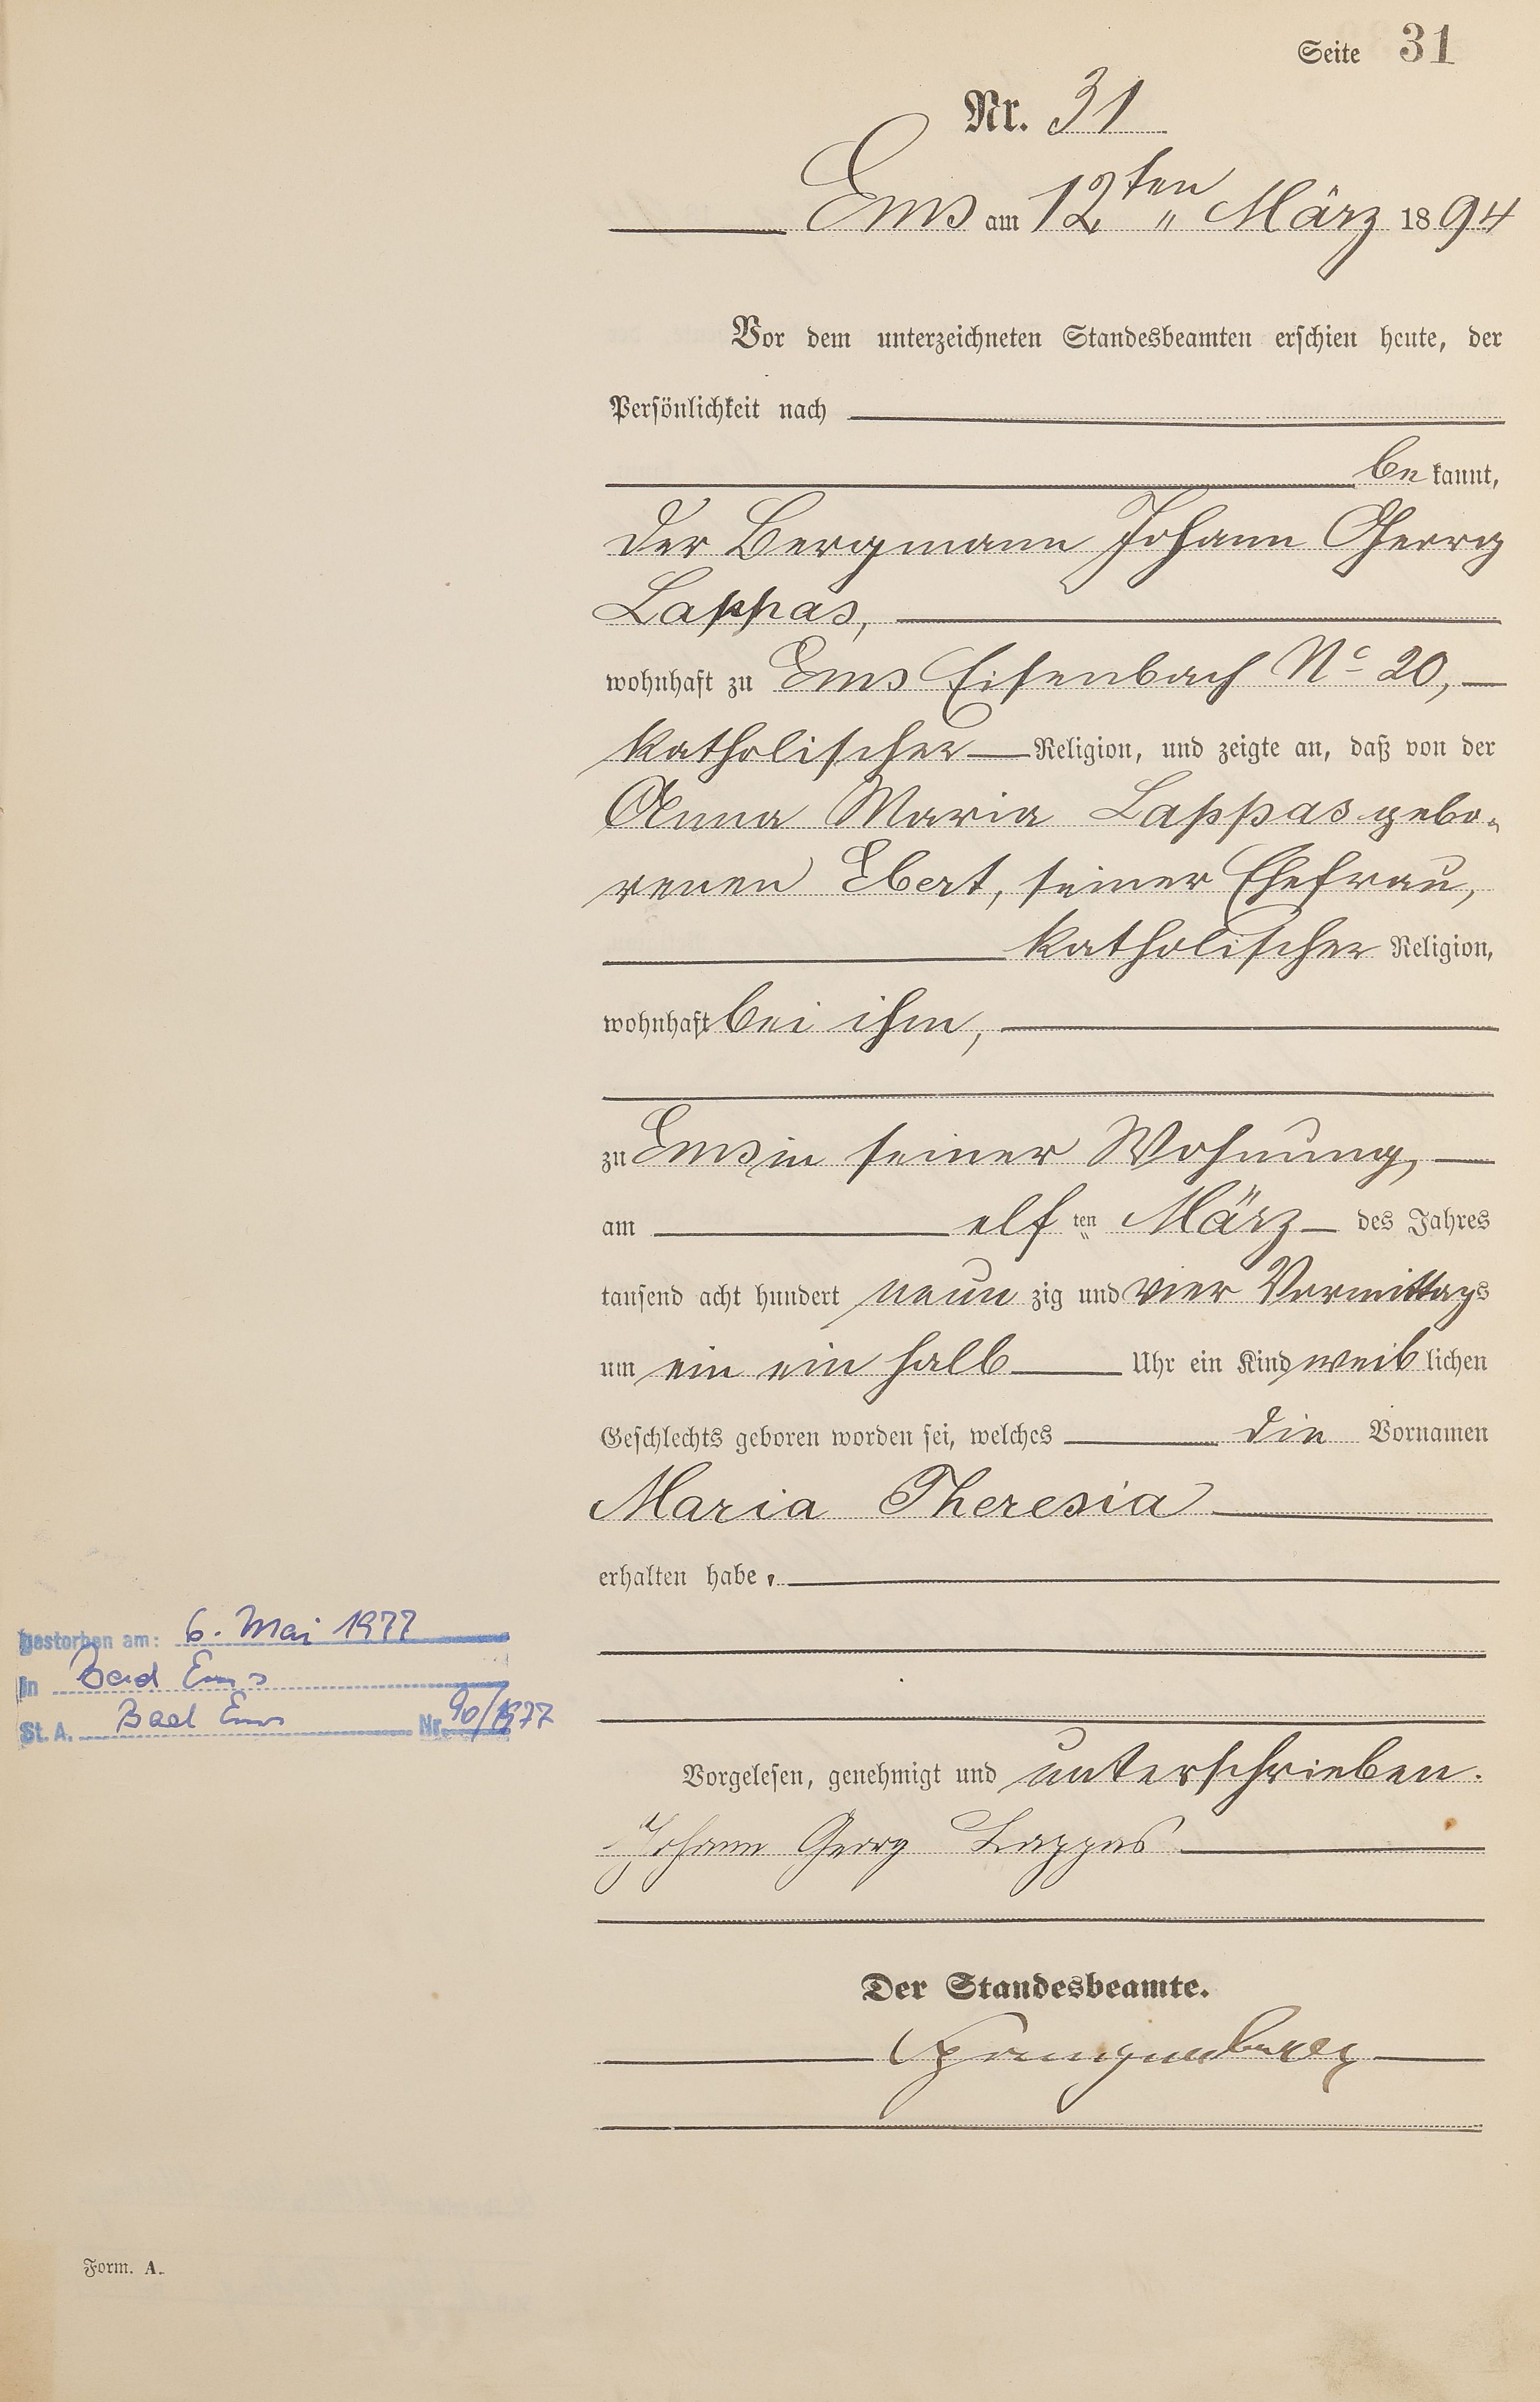 Seite 31
Nr. 31
Ems am 12ten März 1894
Vor dem unterzeichneten Standesbeamten erschien heute, der
Persönlichkeit nach
bekannt,
der Bergmann Johann Georg
Lappas,
wohnhaft zu Ems Eisenbach No 20,
katholischer Religion, und zeigte an, daß von der
Anna Maria Lappas gebo-
renen Ebert, seiner Ehefrau,
katholischer Religion,
wohnhaft bei ihm,
zu Ems in seiner Wohnung,
am elften März des Jahres
tausend acht hundert neunzig und vier Vormittags
um ein ein halb Uhr ein Kind weiblichen
Geschlechts geboren worden sei, welches die Vornamen
Maria Theresia
erhalten habe.
gestorben am: 6. Mai 1977
in Bad Ems
St. A. Bad Ems Nr. 90/1977
Vorgelesen, genehmigt und unterschrieben.
Johann Georg Lappas
Der Standesbeamte.
Spangenberg
Form. A.